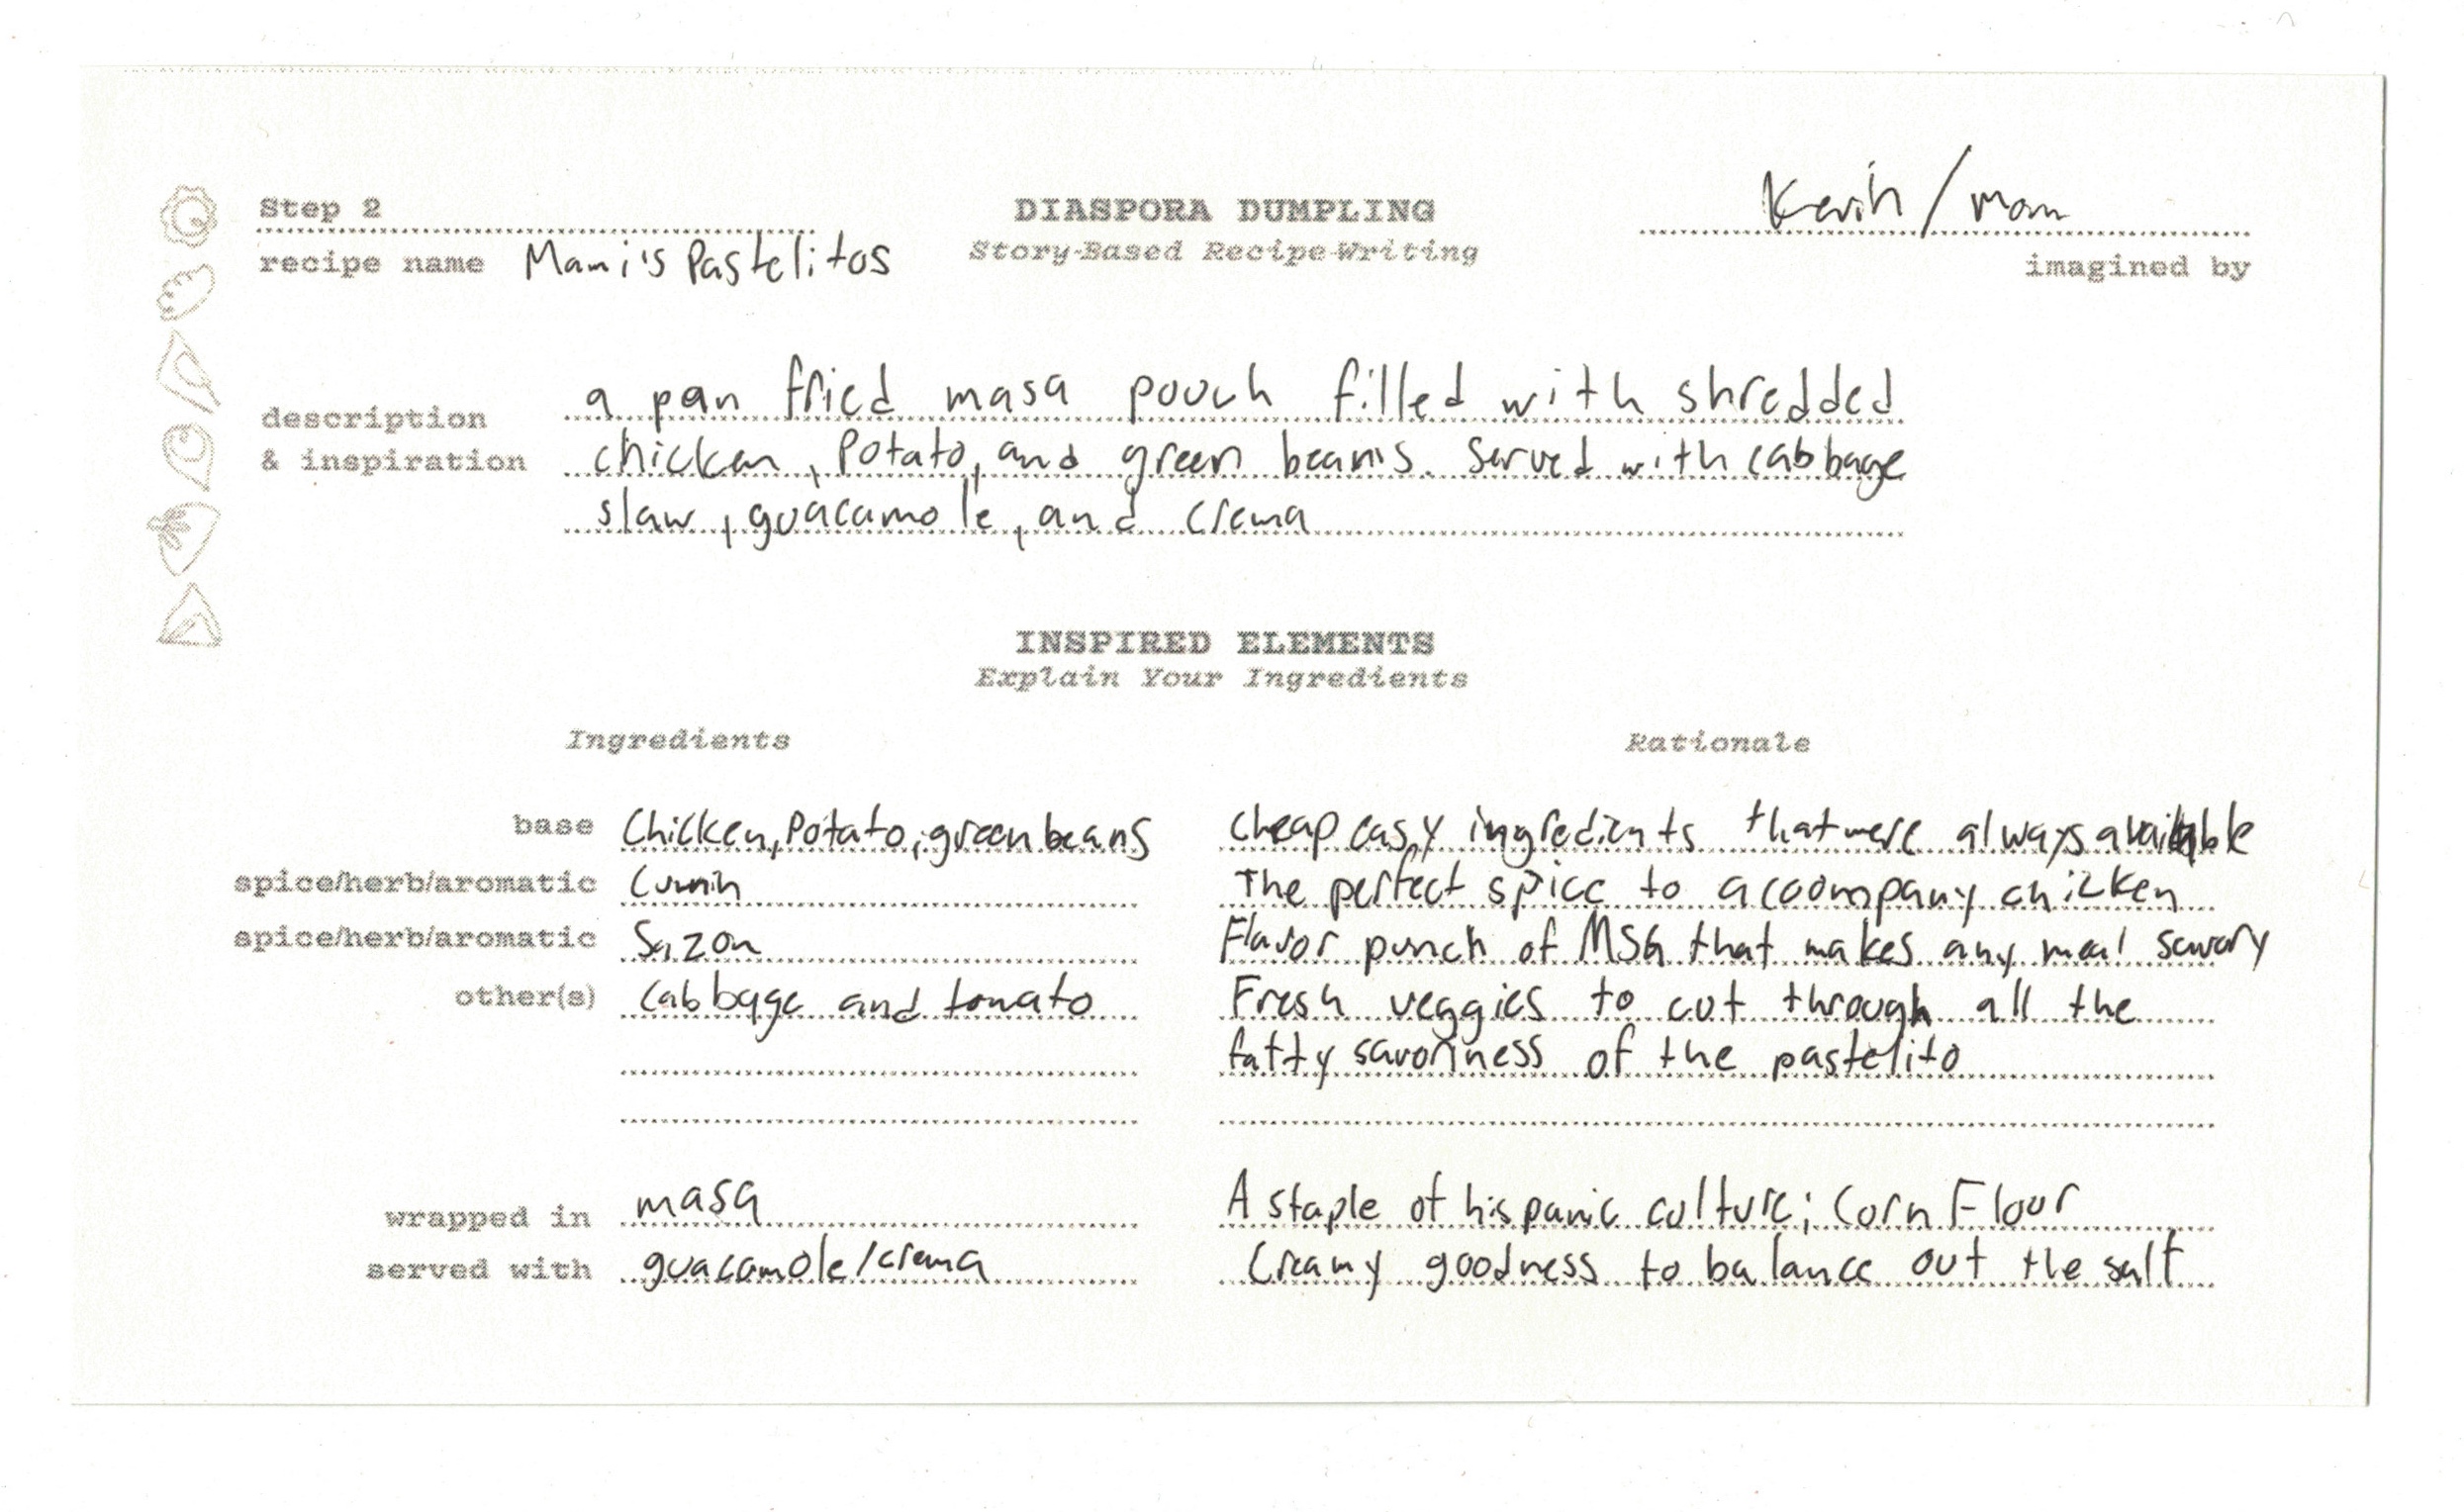 Step 2
DIASPORA DUMPLING
Kevin / Mom
recipe name Mami's Pastelitos
Story-Based Recipe-Writing
imagined by
description & inspiration
a pan fried masa pouch filled with shredded
chicken, Potato, and green beans. Served with cabbage
slaw, guacamole, and crema
INSPIRED ELEMENTS
Explain Your Ingredients
Ingredients Rationale
base Chicken, Potato, green beans cheap easy ingredients that were always available
spice/herb/aromatic Cumin The perfect spice to accompany chicken
spice/herb/aromatic Sazon Flavor punch of MSG that makes any meal savory
other(s) Cabbage and tomato Fresh veggies to cut through all the
fatty savoriness of the pastelito
wrapped in masa A staple of hispanic culture; Corn Flour
served with guacamole/crema Creamy goodness to balance out the salt